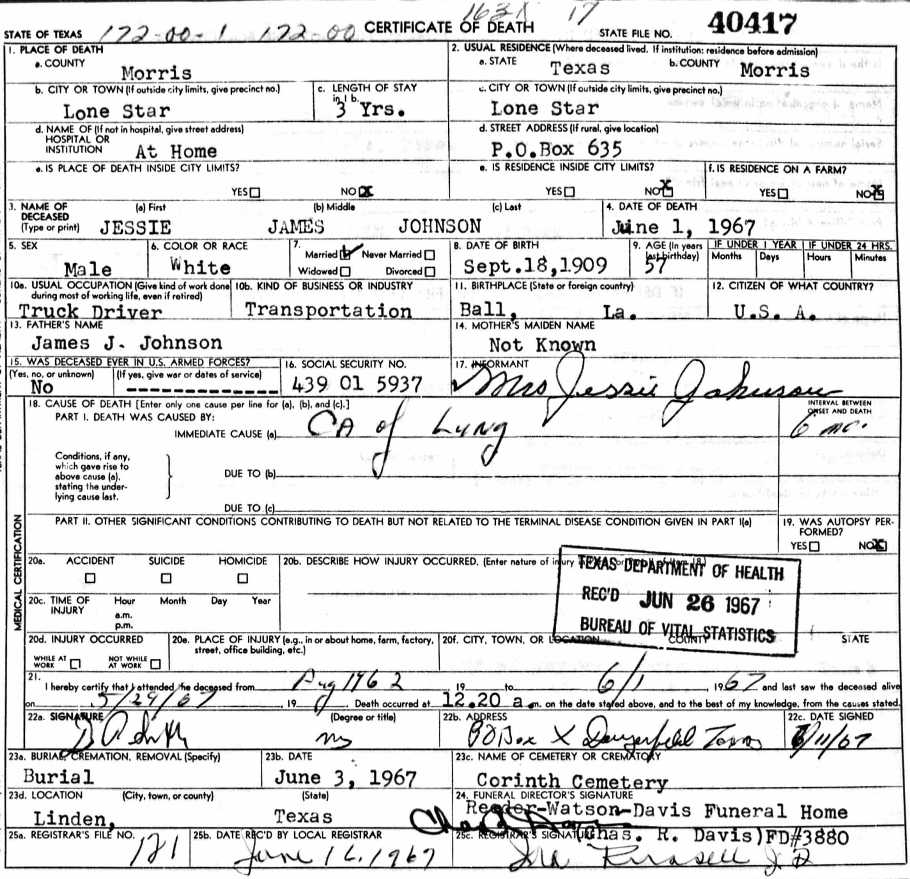 163X 17
STATE OF TEXAS 172-00-1 172-00 CERTIFICATE OF DEATH STATE FILE NO. 40417
1. PLACE OF DEATH
a. COUNTY
Morris
2. USUAL RESIDENCE (Where deceased lived. If institution: residence before admission)
a. STATE Texas b. COUNTY Morris
b. CITY OR TOWN (If outside city limits, give precinct no.)
Lone Star
c. LENGTH OF STAY
in 1 b.
3 Yrs.
c. CITY OR TOWN (If outside city limits, give precinct no.)
Lone Star
d. NAME OF (If not in hospital, give street address)
HOSPITAL OR
INSTITUTION At Home
d. STREET ADDRESS (If rural, give location)
P.O.Box 635
e. IS PLACE OF DEATH INSIDE CITY LIMITS?
YES NO X
e. IS RESIDENCE INSIDE CITY LIMITS?
YES NO X
f. IS RESIDENCE ON A FARM?
YES NO X
3. NAME OF
DECEASED
(Type or print)
(a) First (b) Middle (c) Last
JESSIE JAMES JOHNSON
4. DATE OF DEATH
June 1, 1967
5. SEX
Male
6. COLOR OR RACE
White
7.
Married Never Married
Widowed Divorced
8. DATE OF BIRTH
Sept.18,1909
9. AGE (In years
last birthday)
57
IF UNDER 1 YEAR IF UNDER 24 HRS.
Months Days Hours Minutes
10a. USUAL OCCUPATION (Give kind of work done
during most of working life, even if retired)
Truck Driver
10b. KIND OF BUSINESS OR INDUSTRY
Transportation
11. BIRTHPLACE (State or foreign country)
Ball, La.
12. CITIZEN OF WHAT COUNTRY?
U.S.A.
13. FATHER'S NAME
James J. Johnson
14. MOTHER'S MAIDEN NAME
Not Known
15. WAS DECEASED EVER IN U.S. ARMED FORCES?
(Yes, no, or unknown) (If yes, give war or dates of service)
No -------------
16. SOCIAL SECURITY NO.
439 01 5937
17. INFORMANT
Mrs Jessie Johnson
18. CAUSE OF DEATH [Enter only one cause per line for (a), (b), and (c).]
PART I. DEATH WAS CAUSED BY:
IMMEDIATE CAUSE (a) CA of Lung
INTERVAL BETWEEN
ONSET AND DEATH
6 mo.
Conditions, if any,
which gave rise to
above cause (a),
stating the under-
lying cause last.
DUE TO (b)
DUE TO (c)
PART II. OTHER SIGNIFICANT CONDITIONS CONTRIBUTING TO DEATH BUT NOT RELATED TO THE TERMINAL DISEASE CONDITION GIVEN IN PART I(a)
19. WAS AUTOPSY PER-
FORMED?
YES NO X
MEDICAL CERTIFICATION
20a. ACCIDENT SUICIDE HOMICIDE
20b. DESCRIBE HOW INJURY OCCURRED. (Enter nature of injury
TEXAS DEPARTMENT OF HEALTH
REC'D JUN 26 1967
BUREAU OF VITAL STATISTICS
20c. TIME OF
INJURY
Hour Month Day Year
a.m.
p.m.
20d. INJURY OCCURRED
WHILE AT
WORK
NOT WHILE
AT WORK
20e. PLACE OF INJURY (e.g., in or about home, farm, factory,
street, office building, etc.)
20f. CITY, TOWN, OR LOCATION COUNTY STATE
21.
I hereby certify that I attended the deceased from Aug 1962 19 to 6/1 1967 and last saw the deceased alive
on 5/29/67 19 Death occurred at 12.20 a m. on the date stated above, and to the best of my knowledge, from the causes stated.
22a. SIGNATURE (Degree or title)
22b. ADDRESS
PO Box X Daingerfield Texas
22c. DATE SIGNED
6/11/67
23a. BURIAL, CREMATION, REMOVAL (Specify)
Burial
23b. DATE
June 3, 1967
23c. NAME OF CEMETERY OR CREMATORY
Corinth Cemetery
23d. LOCATION (City, town, or county) (State)
Linden, Texas
24. FUNERAL DIRECTOR'S SIGNATURE
Reeder-Watson-Davis Funeral Home
(Chas. R. Davis)FD#3880
25a. REGISTRAR'S FILE NO.
121
25b. DATE REC'D BY LOCAL REGISTRAR
June 16, 1967
25c. REGISTRAR'S SIGNATURE
Ira Russell